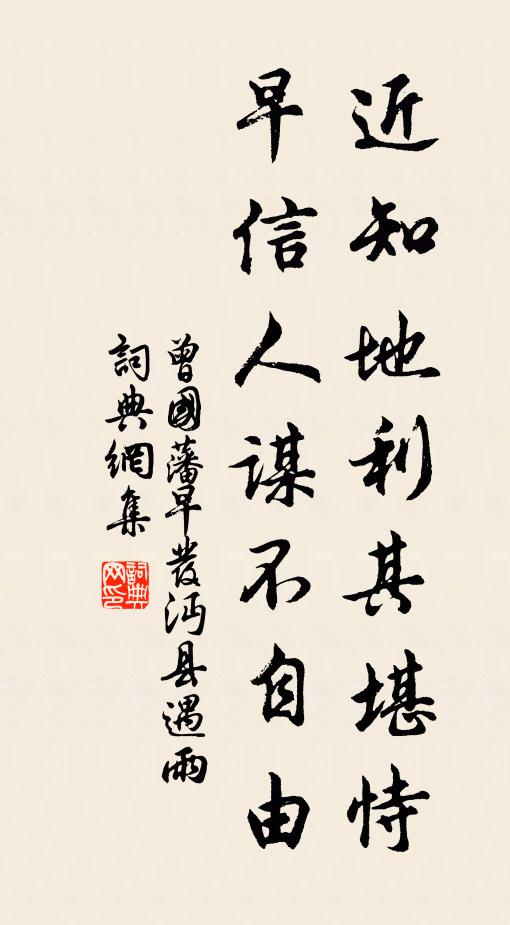 近知地利其堪恃
早信人謀不自由
曾國藩早發沔县遇雨
詞典網集
詞典网印